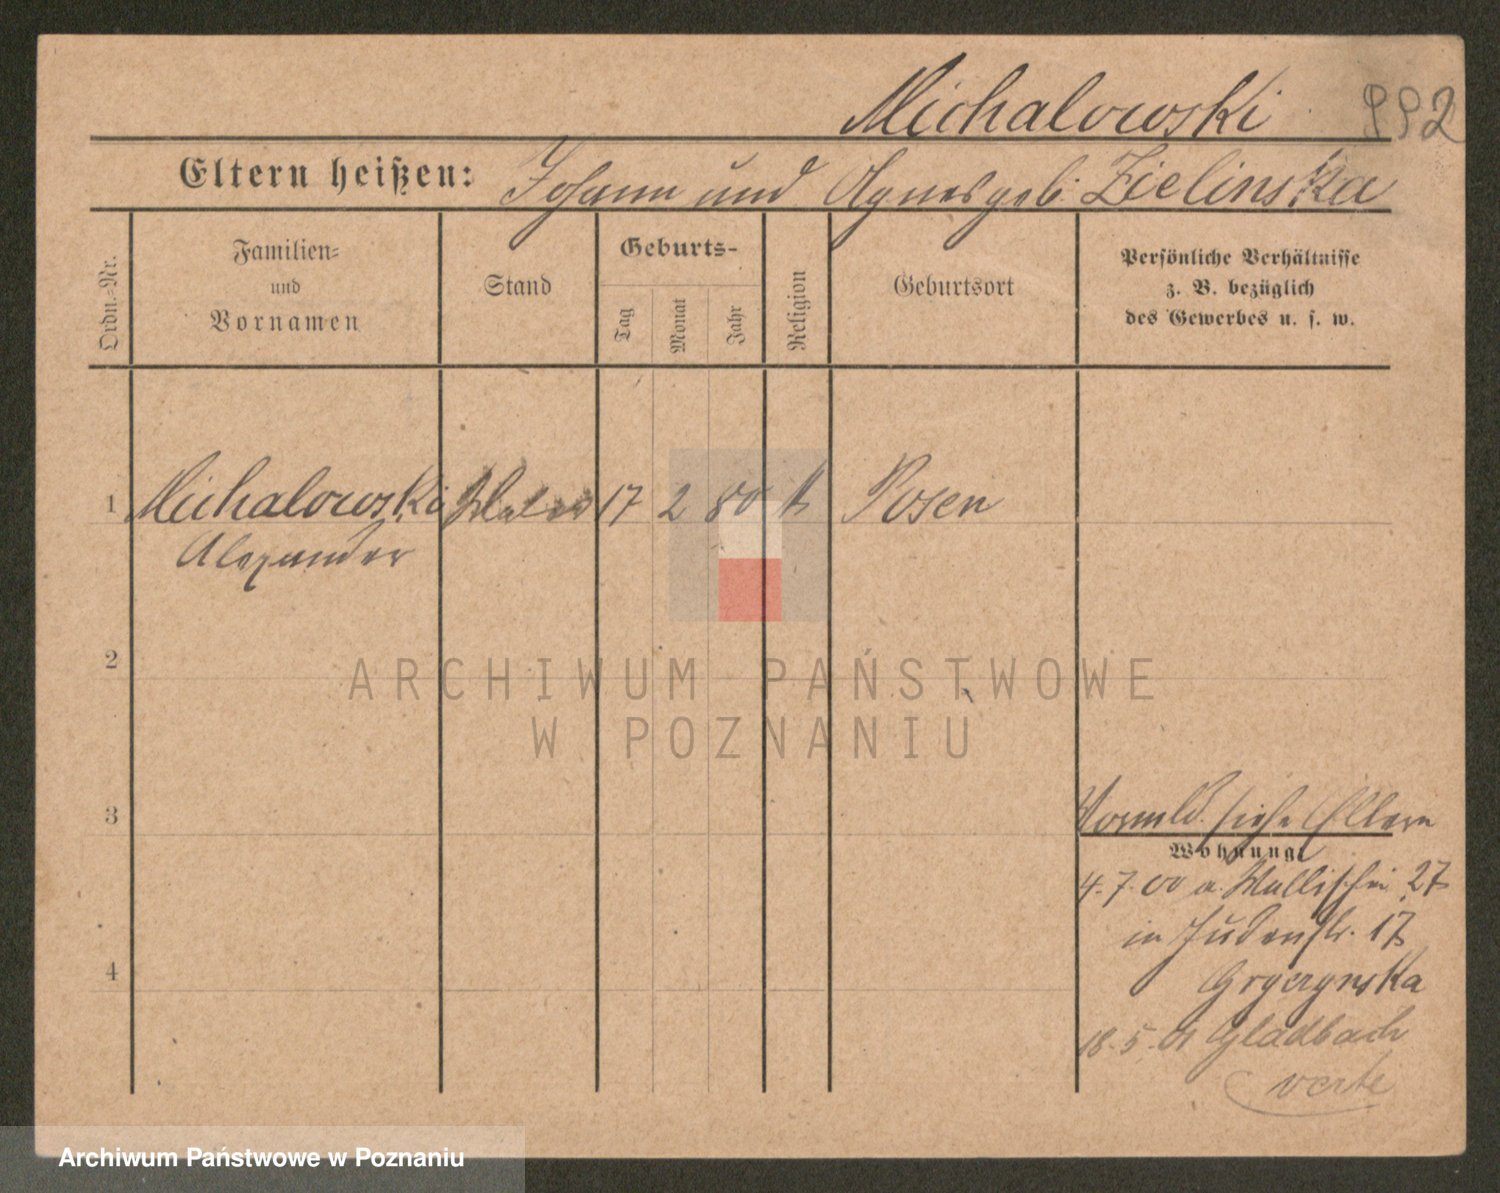 Michalowski 992
Eltern heißen: Johann und Agnes geb. Zielinska
Ordn.-Nr.
Familien=
und
Vornamen
Stand
Geburts-
Tag
Monat
Jahr
Religion
Geburtsort
Persönliche Verhältnisse
z. B. bezüglich
des Gewerbes u. s. w.
1 Michalowski Maler 17 2 80 k Posen
Alexander
2
ARCHIWUM PAŃSTWOWE
W POZNANIU
3
siehe Eltern
Wohnung
4.7.00 a. Wallischei 27
in Judenstr. 17
Gryczynska
4
18.5.01 Gladbach
verte
Archiwum Państwowe w Poznaniu